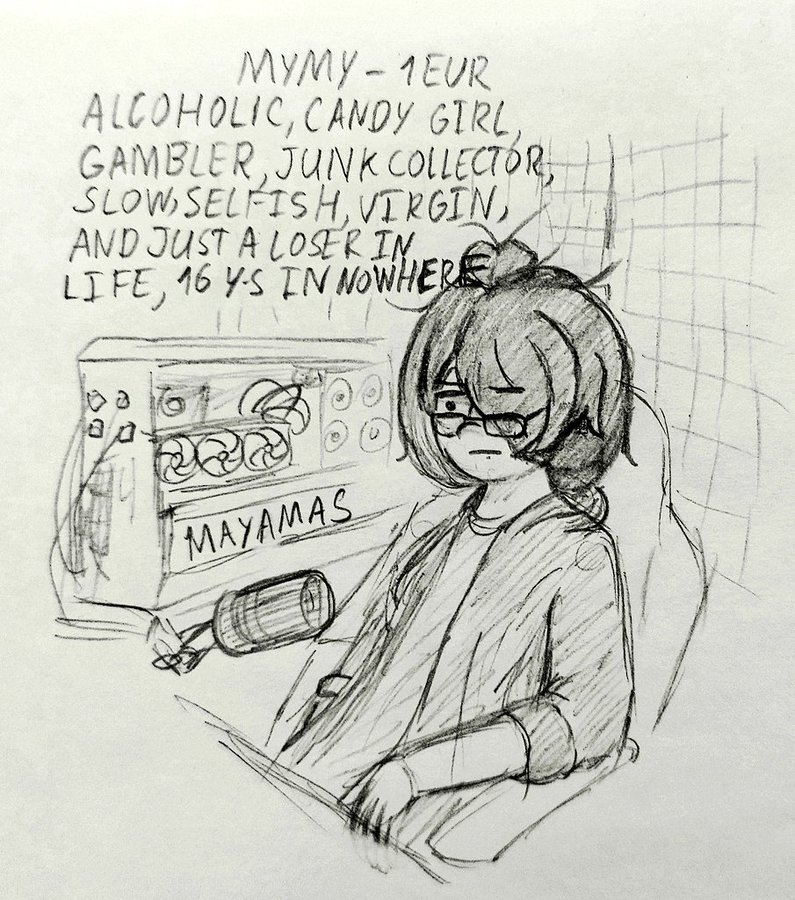 MYMY – 1EUR
ALCOHOLIC, CANDY GIRL,
GAMBLER, JUNK COLLECTOR,
SLOW, SELFISH, VIRGIN,
AND JUST A LOSER IN
LIFE, 16 Y-S IN NOWHERE
MAYAMAS